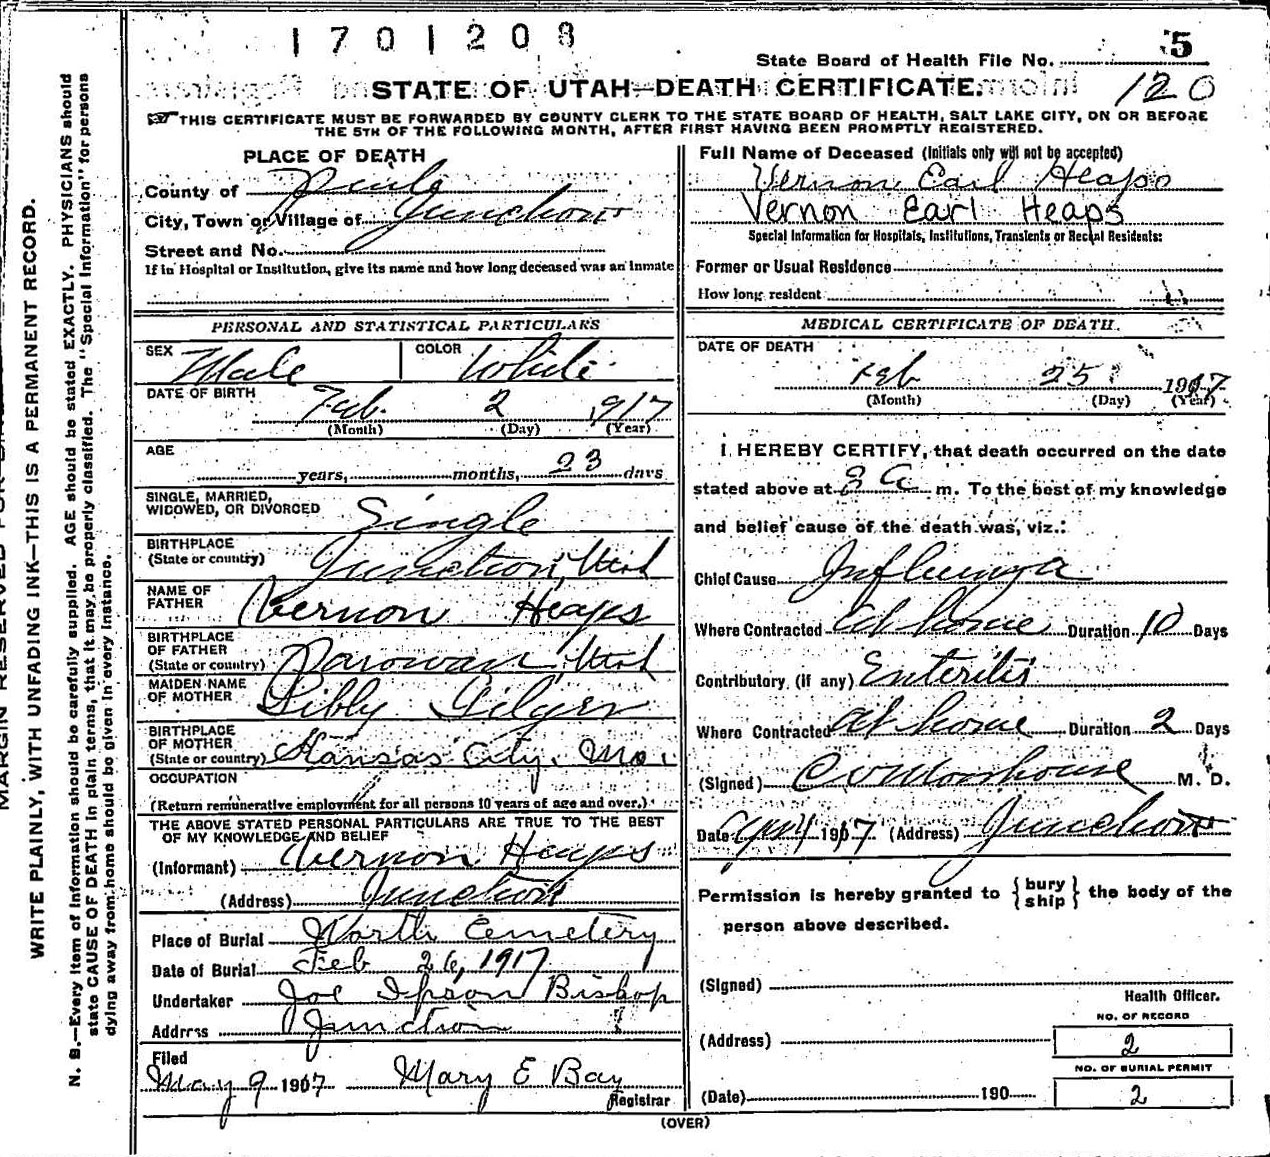 1701208
State Board of Health File No. 5
STATE OF UTAH—DEATH CERTIFICATE.
120
THIS CERTIFICATE MUST BE FORWARDED BY COUNTY CLERK TO THE STATE BOARD OF HEALTH, SALT LAKE CITY, ON OR BEFORE
THE 5TH OF THE FOLLOWING MONTH, AFTER FIRST HAVING BEEN PROMPTLY REGISTERED.
MARGIN RESERVED FOR
WRITE PLAINLY, WITH UNFADING INK—THIS IS A PERMANENT RECORD.
N. B.—Every item of information should be carefully supplied. AGE should be stated EXACTLY. PHYSICIANS should
state CAUSE OF DEATH in plain terms, that it may be properly classified. The "Special Information" for persons
dying away from home should be given in every instance.
PLACE OF DEATH
County of Piute
City, Town or Village of Junction
Street and No.
If in Hospital or Institution, give its name and how long deceased was an inmate
PERSONAL AND STATISTICAL PARTICULARS
SEX Male COLOR White
DATE OF BIRTH Feb. 2 1917
(Month) (Day) (Year)
AGE
years, months, 23 days
SINGLE, MARRIED,
WIDOWED, OR DIVORCED Single
BIRTHPLACE
(State or country) Junction, Utah
NAME OF
FATHER Vernon Heaps
BIRTHPLACE
OF FATHER
(State or country) Parowan, Utah
MAIDEN NAME
OF MOTHER Libby Gilger
BIRTHPLACE
OF MOTHER
(State or country) Kansas City, Mo.
OCCUPATION
(Return remunerative employment for all persons 10 years of age and over.)
THE ABOVE STATED PERSONAL PARTICULARS ARE TRUE TO THE BEST
OF MY KNOWLEDGE AND BELIEF
(Informant) Vernon Heaps
(Address) Junction
Place of Burial North Cemetery
Date of Burial Feb 26, 1917
Undertaker Joe Ipson Bishop
Address Junction
Filed
May 9 1907 Mary E Bay
Registrar
Full Name of Deceased (Initials only will not be accepted)
Vernon Earl Heaps
Vernon Earl Heaps
Special Information for Hospitals, Institutions, Transients or Recent Residents:
Former or Usual Residence
How long resident
MEDICAL CERTIFICATE OF DEATH.
DATE OF DEATH
Feb 25 1917
(Month) (Day) (Year)
I HEREBY CERTIFY, that death occurred on the date
stated above at 3 a m. To the best of my knowledge
and belief cause of the death was, viz.:
Chief Cause Influenza
Where Contracted at home Duration 10 Days
Contributory (if any) Enteritis
Where Contracted at home Duration 2 Days
(Signed) M. D.
Date 1917 (Address) Junction
Permission is hereby granted to { bury ship } the body of the
person above described.
(Signed)
Health Officer.
NO. OF RECORD
(Address) 2
NO. OF BURIAL PERMIT
(Date) 190 2
(OVER)